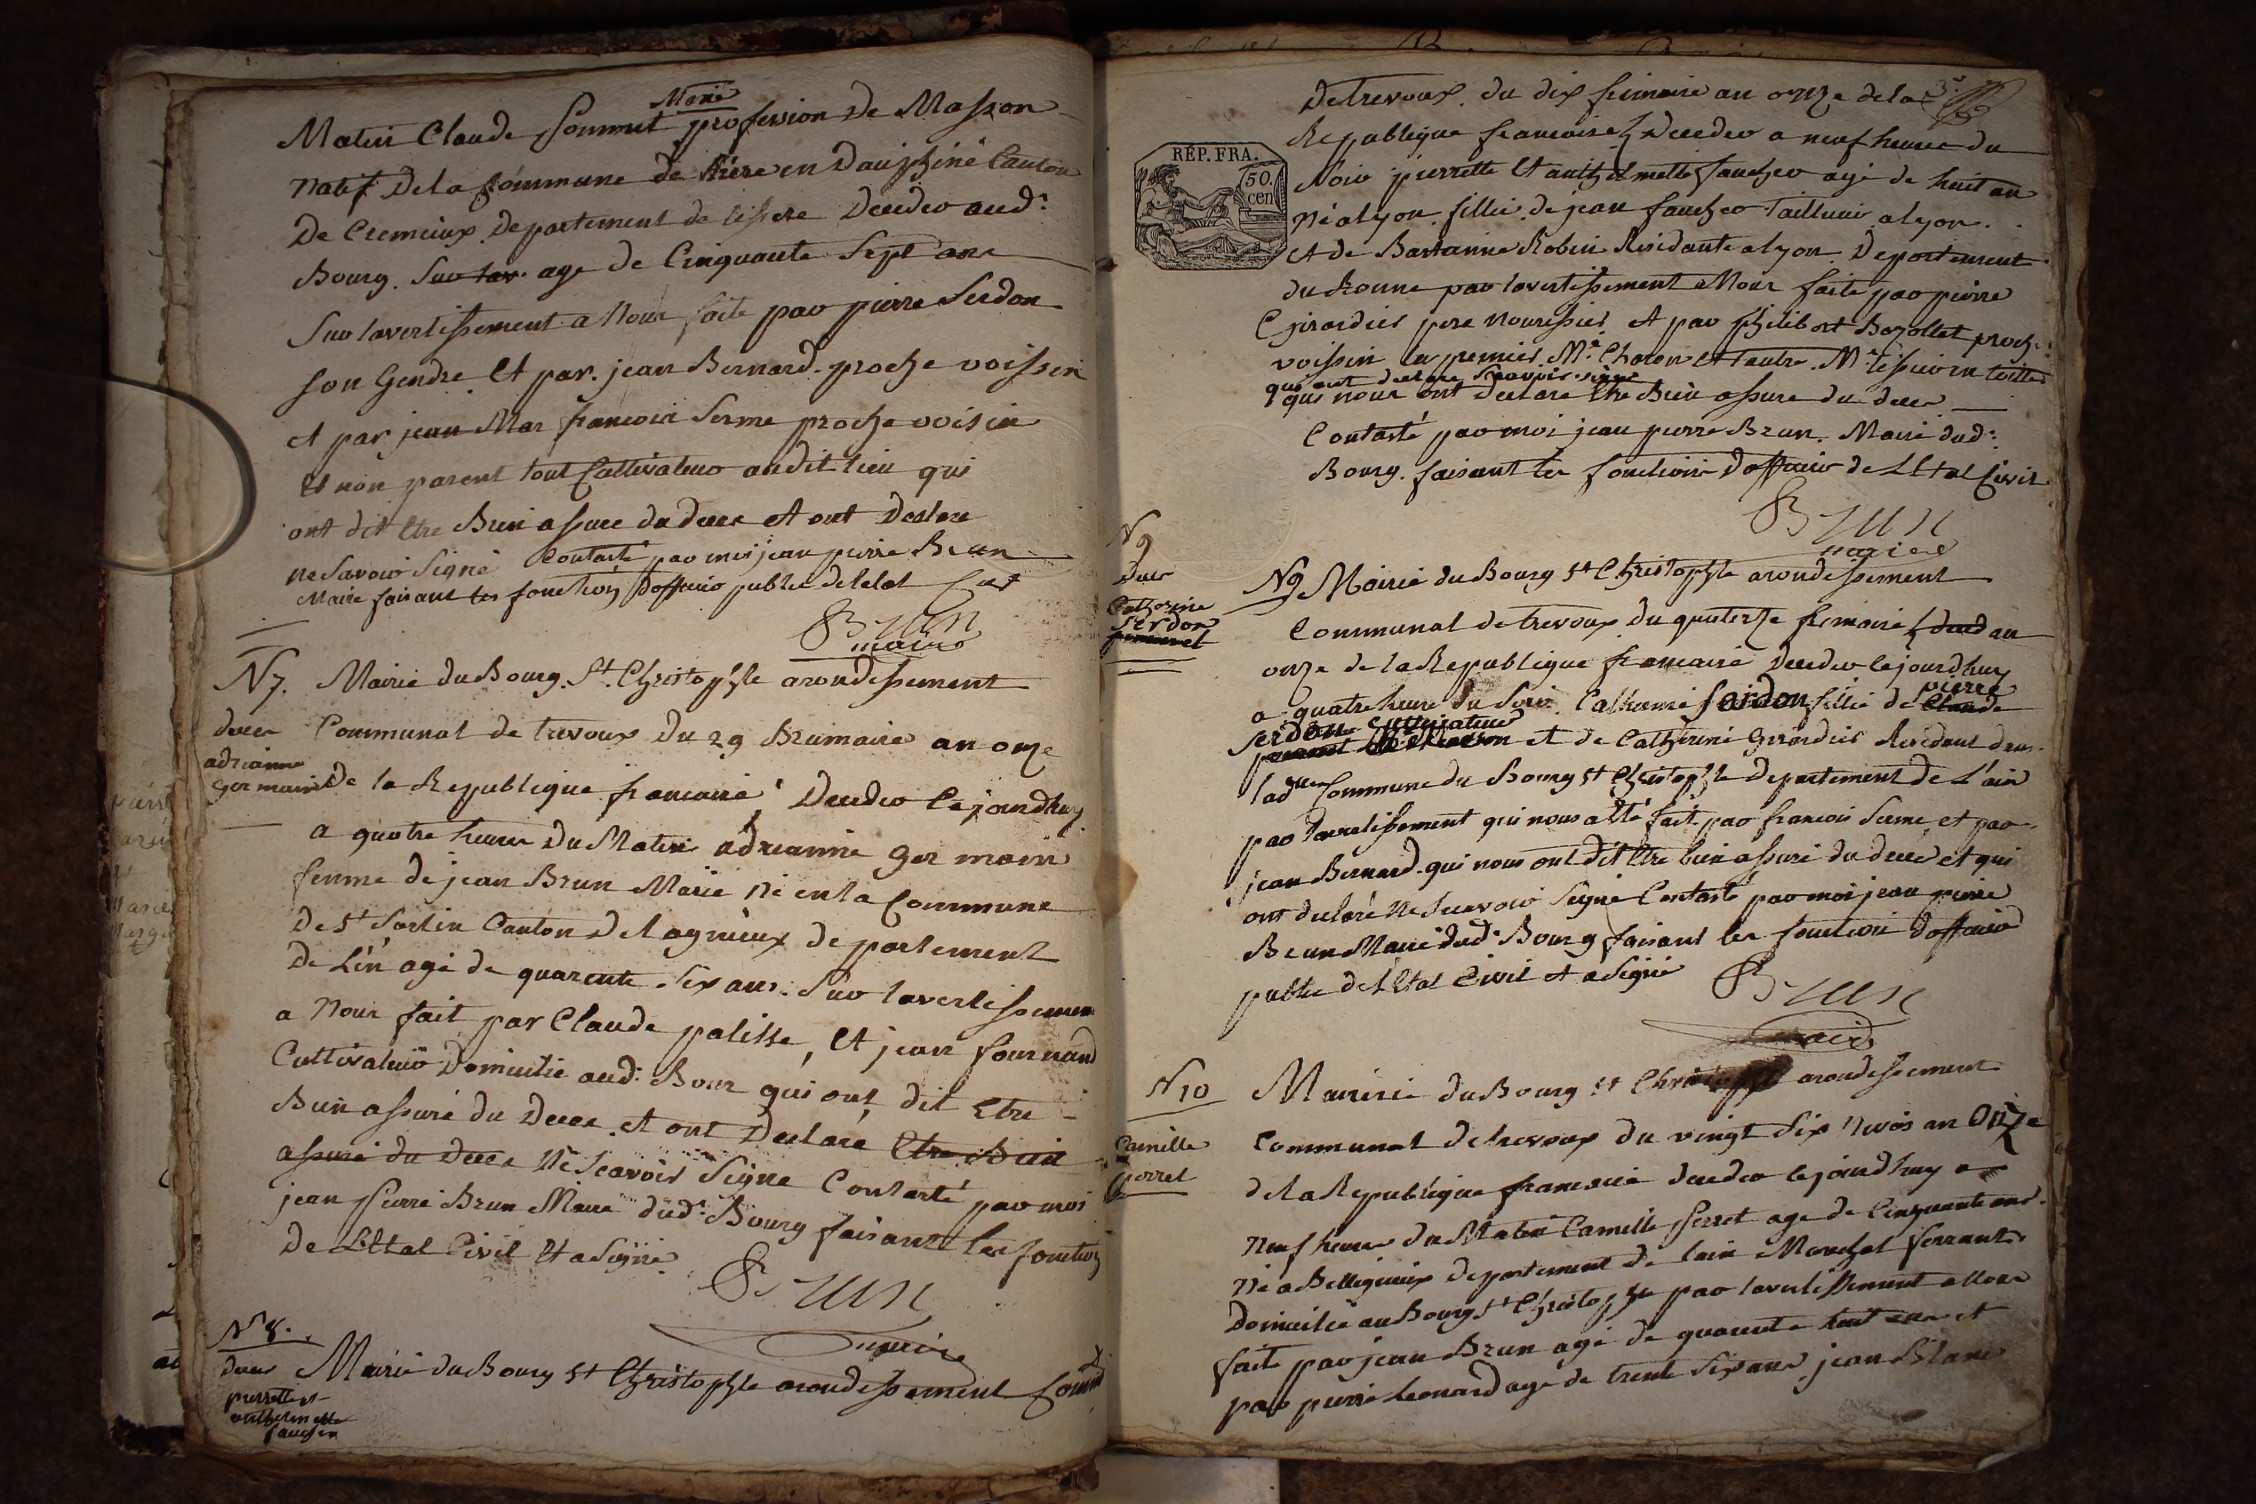 Marié
Matin Claude Pommet profession de Masson
natif de la Commune de hiere en Dauphiné Canton
De Cremieux Departement de lissere Deceder aud:
Bourg. Sur lav age de Cinquante Sept ans
Sur lavertissement a Nous faite par pierre Serdon
son Gendre Et par jean Bernard proche voissin
et par jean Mar francois Serme proche voisin
Et non parent tout Cultivateur audit lieu qui
ont dit Etre Bien assure du deces et ont Declare
ne Savoir Signé Contasté par moi jean pierre Brun
Maire faisant les fonction Dofficier public de letat Civil
Brun
maire
N 7. Mairie du Bourg St Christophle arondissement
deces
adrianne
Germain
Communal de trevoux Du 29 Brumaire an onze
de la Republique francaise Deceder Cejourdhuy
a quatre heures Du Matin adrianne Germain
femme de jean Brun Marie né en la Commune
De St Sorlin Canton De lagnieux departement
De L'én agé de quarente six ans. Sur lavertissemen
a Nous fait par Claude palisse, Et jean fournand
Cultivateur Domicilie aud: Bour qui ont dit Etre
Bien assuré du Deces et ont Declaré Etre Bien
assuré du Deces Ne Scavoir Signe Contasté par moi
jean pierre Brun Maire dud: Bourg faisant les fonction
de LEtat Civil Et a Signé
Brun
maire
N 8.
deces
pierrette et
anthelmette
faucher
Mairie du Bourg St Christophle arondissement Comm
De trevoux. du dix frimaire an onze de la
Republique francoise Deceder a neuf heures du
RÉP. FRA.
50.
cen
Soir pierrette Et anthelmette faucher agé de huit an
Né a lyon fillie de jean faucher Tailleur a lyon.
et de Bartanne Robin Residante a lyon Departement
du Ronne par lavertissement a Nour faite par pierre
Girardier pere Nouressier Et par philibert Bozollet proch:
voissin le premier Md Charon Et lautre Md tessier en toille
que ont declare Scavoir signe
qui nour ont declaré Etre Bien assure du deces
Contasté par moi jean pierre Brun. Maire dud:
Bourg. faisant les fonctions Dofficier de LEtat Civil
Brun
maire
N 9
Deces
Catherine
Serdon
N9 Mairie du Bourg St Christophle arondissement
Communal de trevoux du quaterze frimaire deced an
onze de la Republique francaise Deceder lejourdhuy
pierre
a quatre heure du Soir Catherine Serdon fillie de Claude
Serdon Cultivateur
et de Catherine Girardier Residant dans
ladite Commune du Bourg St Christophle departement de L'ain
par lavertissement qui nous a Eté fait par francois Serme et par
jean Bernard qui nous ont dit Etre bien assuré du deces et qui
ont declaré Ne Scavoir Signé Contasté par moi jean pierre
Brun Maire dud: Bourg faisant les fonctions dofficier
public de LEtat Civil et a Signé
Brun
maire
N 10
Camille
perret
Mairie du Bourg St Christophle arondissement
Communal de trevoux du vingt Six Nivos an Onze
de la Republique francoise deceder lejourdhuy a
Neuf heures du Matin Camille perret age de Cinquante ans.
Né a Belligneux departement de lain Marechal ferrant
Domicilié au Bourg St Christophle par lavertissement a Nous
fait par jean Brun agé de quarante huit ans et
par pierre Leonard age de trente Six ans jean Blanc